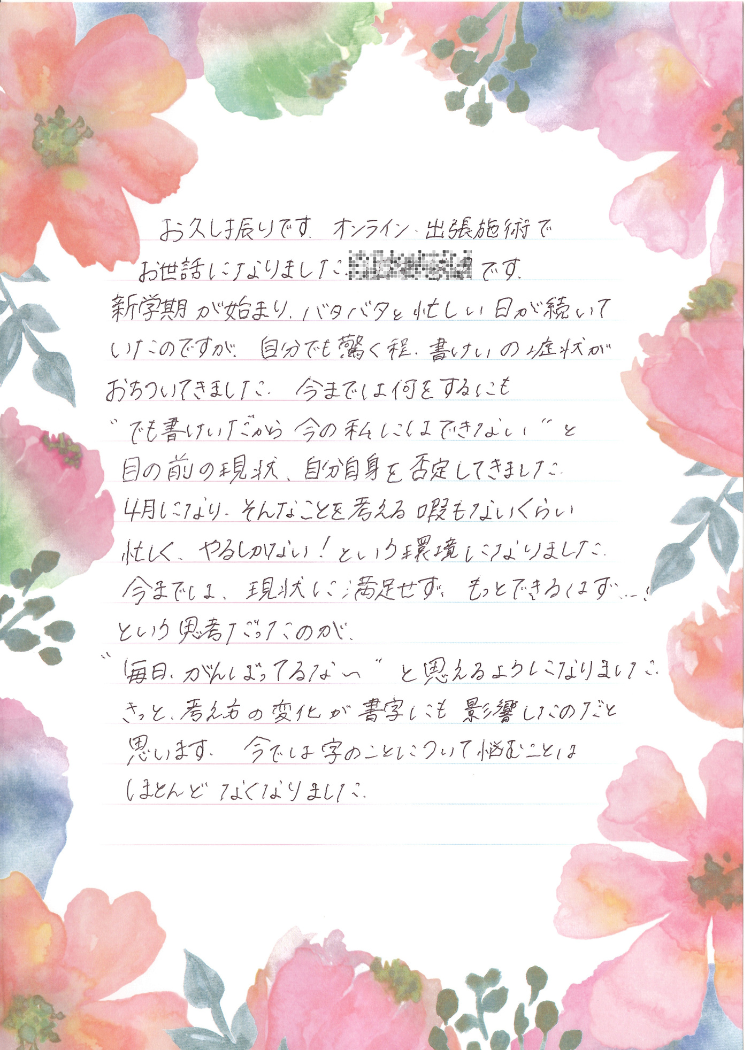 お久し振りです。オンライン、出張施術で
お世話になりました です。
新学期が始まり、バタバタと忙しい日が続いて
いたのですが、自分でも驚く程、書けいの症状が
おちついてきました。今までは何をするにも
"でも書けいだから今の私にはできない"と
目の前の現状、自分自身を否定してきました。
4月になり、そんなことを考える暇もないくらい
忙しく、やるしかない！という環境になりました。
今までは、現状に満足せず、もっとできるはず…！
という思考だったのが、
"毎日、がんばってるな〜"と思えるようになりました。
きっと、考え方の変化が書字にも影響したのだと
思います。今では字のことについて悩むことは
ほとんどなくなりました。